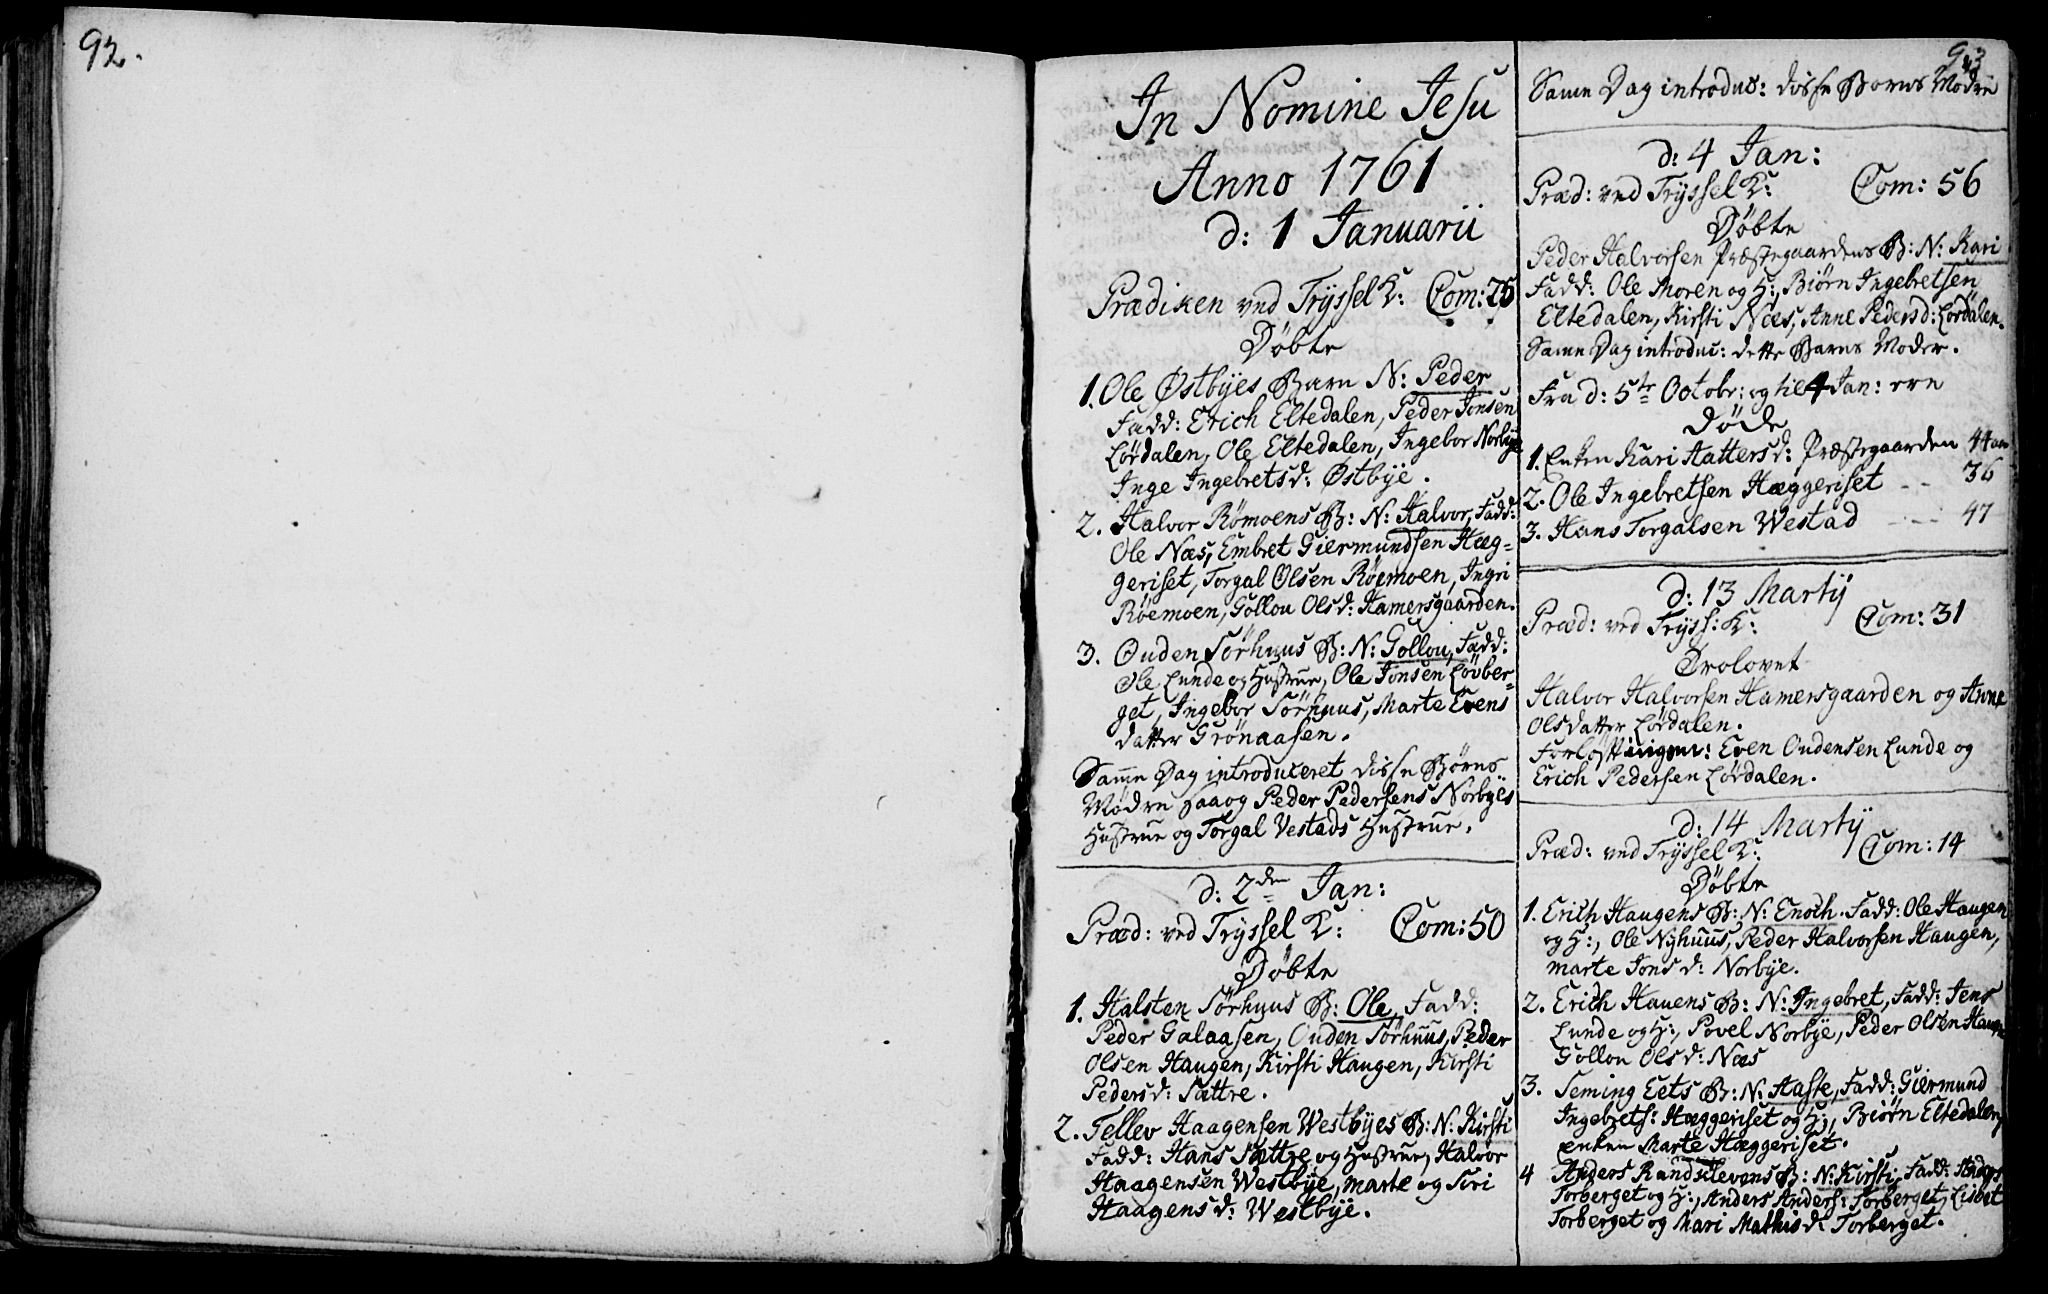 92.
93
In Nomine Jesu
Anno 1761
d: 1 Januarii
Prædiken ved Tryssel K: Com: 25
Døbte
1. Ole Østbyes Barn N: Peder
Fadd: Erich Eltedalen, Peder Jonsen
Lørdalen, Ole Eltedalen, Ingebor Norbye
Inge Ingebretsd: Østbye.
2. Halvor Rømoens B: N: Halvor, Fadd:
Ole Næs, Embret Giermundsen Hæg-
geriset, Torgal Olsen Røemoen, Ingri
Røemoen, Gollou Olsd: Hamersgaarden.
3. Ouden Sørhuus B: N: Gollou, Fadd:
Ole Lunde og Hustrue, Ole Jonsen Løvber-
get, Ingebor Sørhuus, Marte Evens
datter Grønaasen.
Samme Dag introduceret disse Børns
Mødre saa og Peder Pedersens Norbyes
Hustrue og Torgal Vestads Hustrue.
d: 2de Jan:
Præd: ved Tryssel K: Com: 50
Døbte
1. Halsten Sørhuus B: Ole, Fadd:
Peder Galaasen, Ouden Sørhuus, Peder
Olsen Haugen, Kirsti Haugen, Kirsti
Pedersd: Sættre.
2. Tellev Haagensen Westbyes B: N: Kirsti
Fadd: Hans Sættre og Hustrue, Halvor
Haagensen Westbye, Marte og Siri
Haagensd: Westbye.
Samme Dag introduc: disse Børns Mødre
d: 4 Jan:
Præd: ved Tryssel K: Com: 56
Døbte
Peder Halvorsen Præstegaardens B: N: Kari
Fadd: Ole Moren og H:, Biørn Ingebretsen
Eltedalen, Kirsti Næs, Anne Pedersd: Lørdalen.
Samme Dag introduc: dette Barns Moder.
Fra d: 5te Octobr: og til 4 Jan: ere
Døde
1. Enken Kari Hattersd: Præstegaarden 44 aar
2. Ole Ingebretsen Hæggeriset -- 36
3. Hans Torgalsen Westad ---- 47
d: 13 Martij
Præd: ved Tryss: K: Com: 31
Trolovet
Halvor Halvorsen Hamersgaarden og Anne
Olsdatter Lørdalen.
Forlostingm: Even Oudensen Lunde og
Erich Pedersen Lørdalen.
d: 14 Martij
Præd: ved Tryssel K: Com: 14
Døbte
1. Erich Haugens B: N: Enoch. Fadd: Ole Haugen
og H:, Ole Nyhuus, Peder Halvorsen Haugen,
Marte Jonsd: Norbye.
2. Erich Hauens B: N: Ingebret, Fadd: Jens
Lunde og H:, Povel Norbye, Peder Olsen Haugen
Gollou Olsd: Næs
3. Seming Eets B: N: Aaste, Fadd: Giermund
Ingebrets: Hæggeriset og H:, Biørn Eltedalen,
Enken Marte Hæggeriset.
4 Anders Rundflevens B: N: Kirsti, Fadd: Anders
Torberget og H:, Anders Anders: Torberget, Lisbet
Torberget og Mari Mathisd: Torberget.